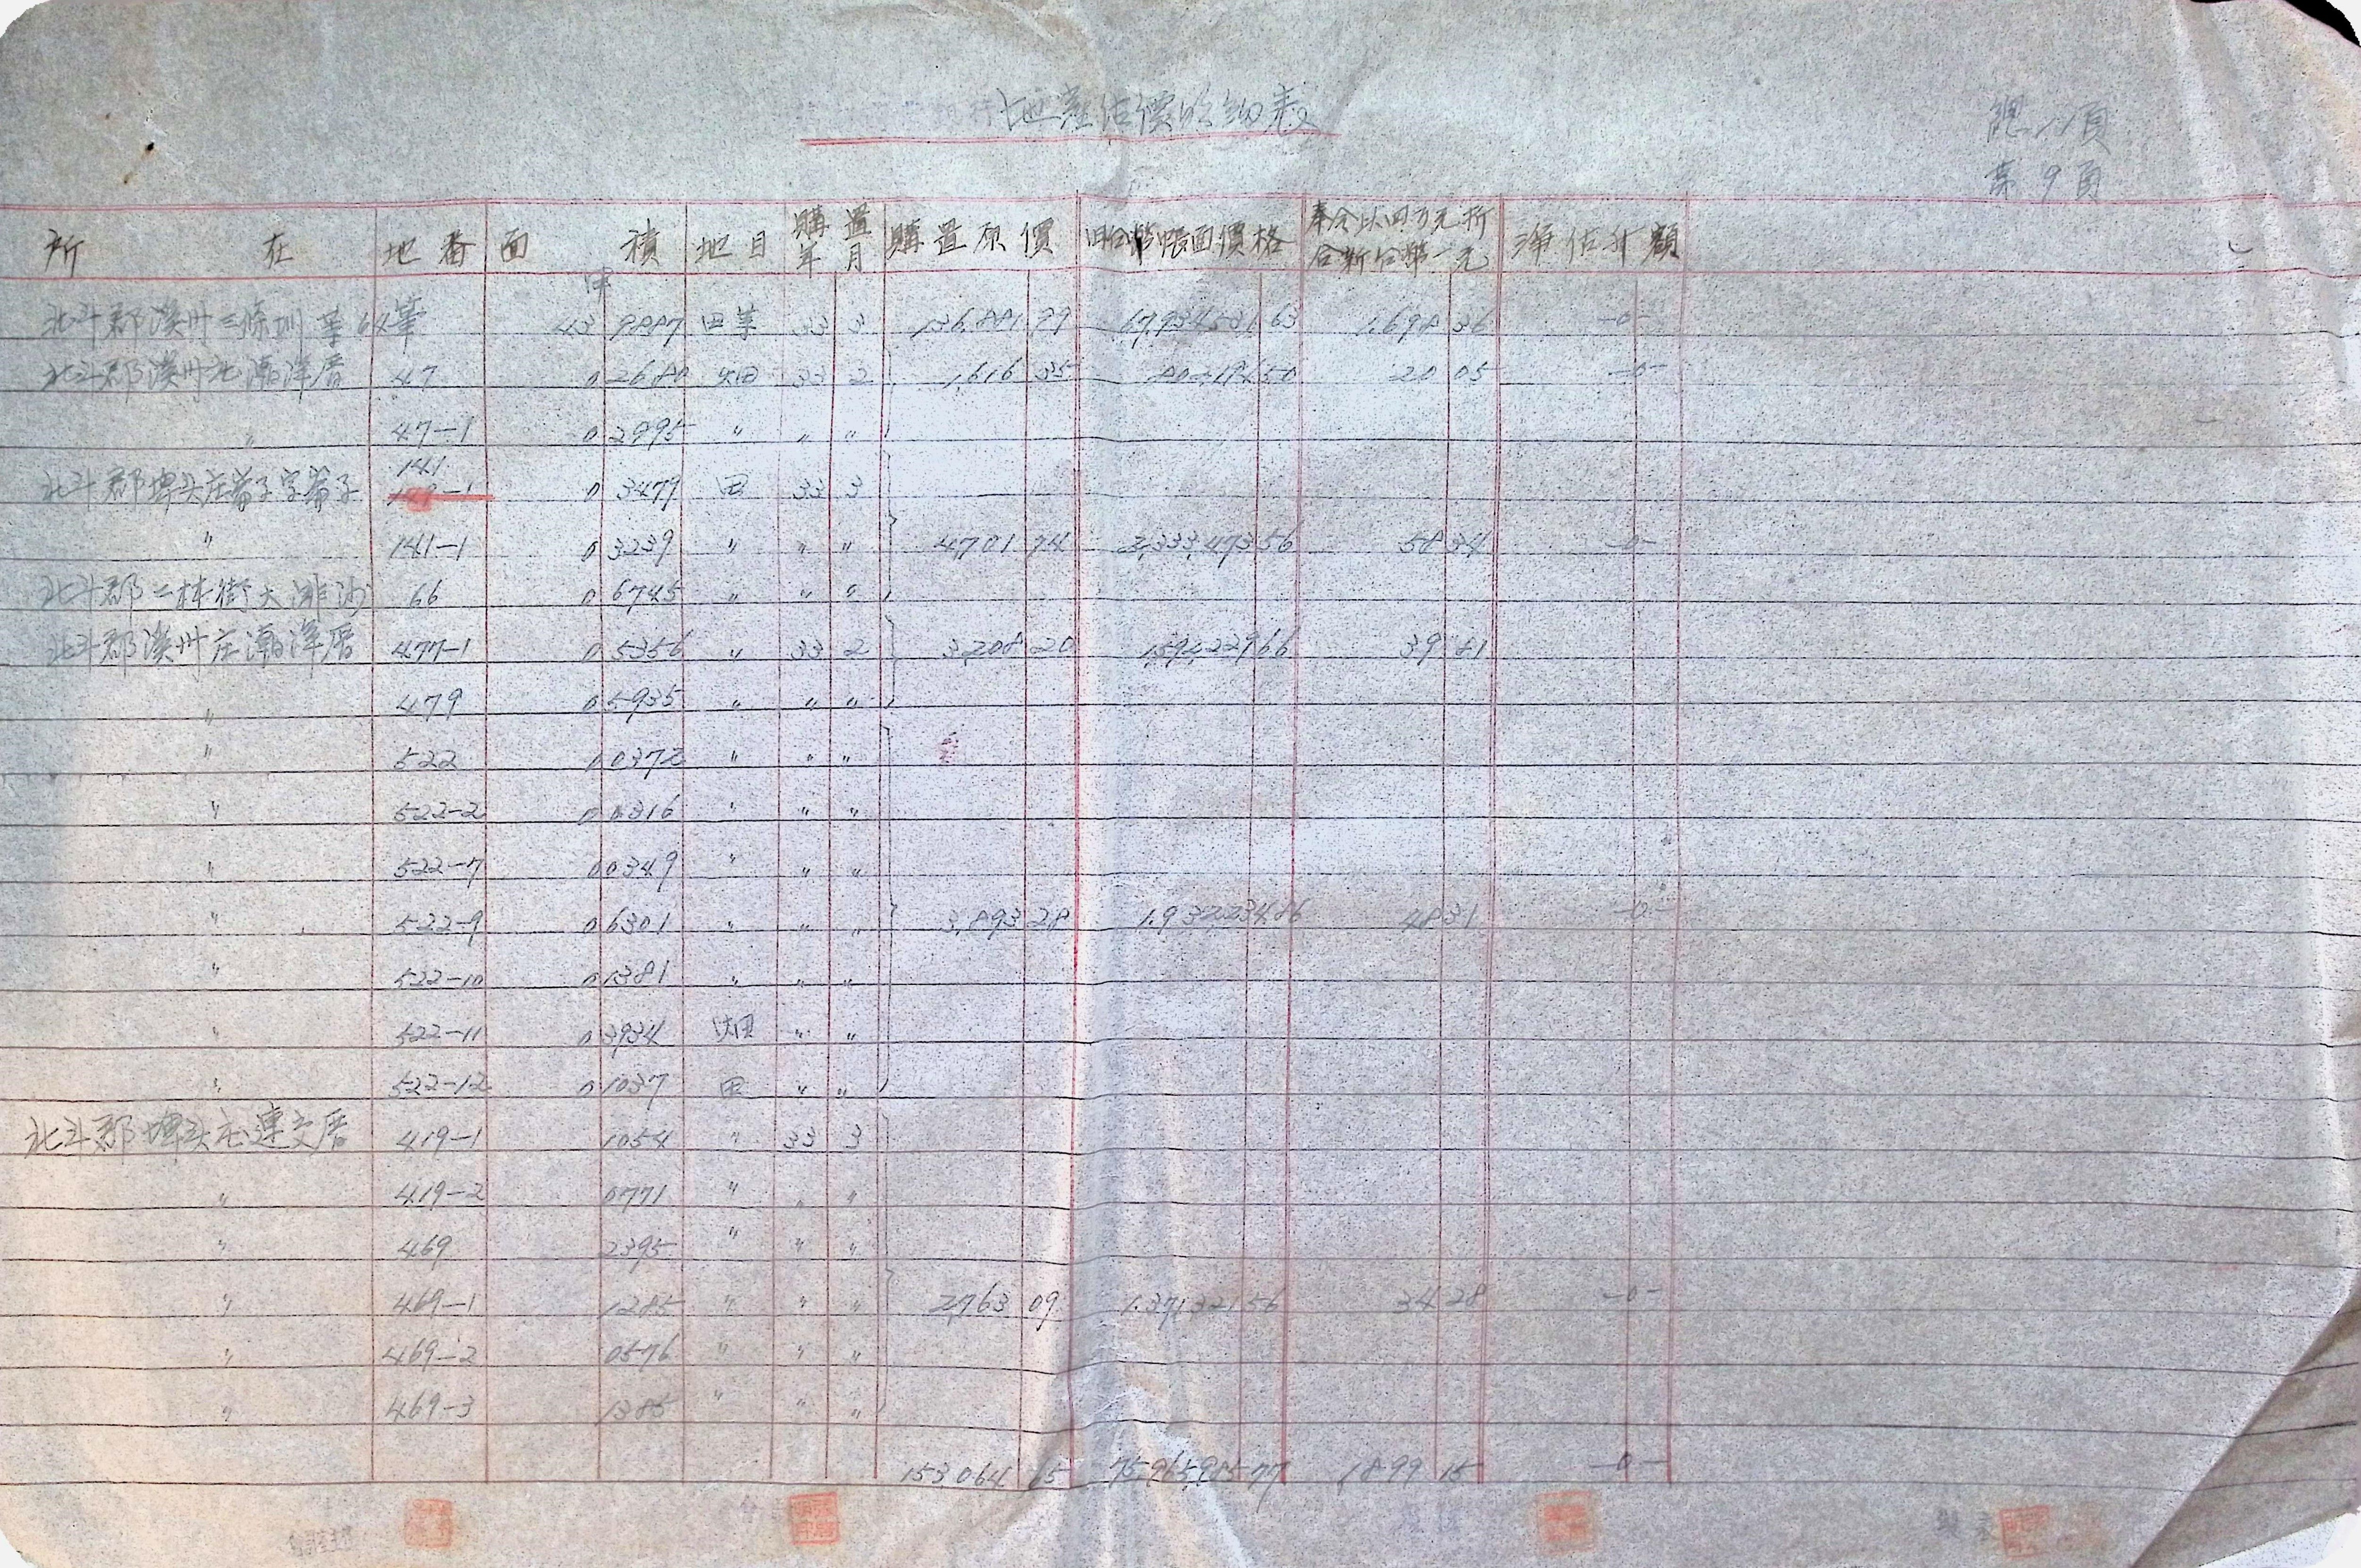 地產估價明細表
總11頁
第9頁
所在 地番 面積 地目 購置年月 購置原價 旧台幣帳面價格 奉令以四万元折合新台幣一元 淨估升額
甲
北斗郡溪州三條圳 等64筆 43 9887 田等 33 3 136,881 99 67,934,531 63 1,698 36 -0-
北斗郡溪州北潮洋厝 47 0 2680 畑 33 2 1,616 35 802,194 50 20 05 -0-
〃 47-1 0 2995 〃 〃 〃
北斗郡埤头庄崙子字崙子 141 0 3479 田 33 3
〃 141-1 0 3239 〃 〃 〃 4,701 74 2,333,473 56 58 34 -0-
北斗郡二林街大排沙 66 0 6745 〃 〃 〃
北斗郡溪州庄潮洋厝 477-1 0 5356 〃 33 2 3,208 20 1,592,229 66 39 81
〃 479 0 5935 〃 〃 〃
〃 522 1 0372 〃 〃 〃
〃 522-2 0 0316 〃 〃 〃
〃 522-7 0 0349 〃 〃 〃
〃 522-9 0 6301 〃 〃 〃 3,893 28 1,932,234 86 48 31 -0-
〃 522-10 0 1381 〃 〃 〃
〃 522-11 0 3934 畑 〃 〃
〃 522-12 0 1037 田 〃 〃
北斗郡埤头庄連交厝 419-1 1054 〃 33 3
〃 419-2 0771 〃 〃 〃
〃 469 2395 〃 〃 〃
〃 469-1 1285 〃 〃 〃 2,763 09 1,371,321 56 34 28 -0-
〃 469-2 0576 〃 〃 〃
〃 469-3 1385 〃 〃 〃
153,064 65 75,965,985 77 1,899 15 -0-